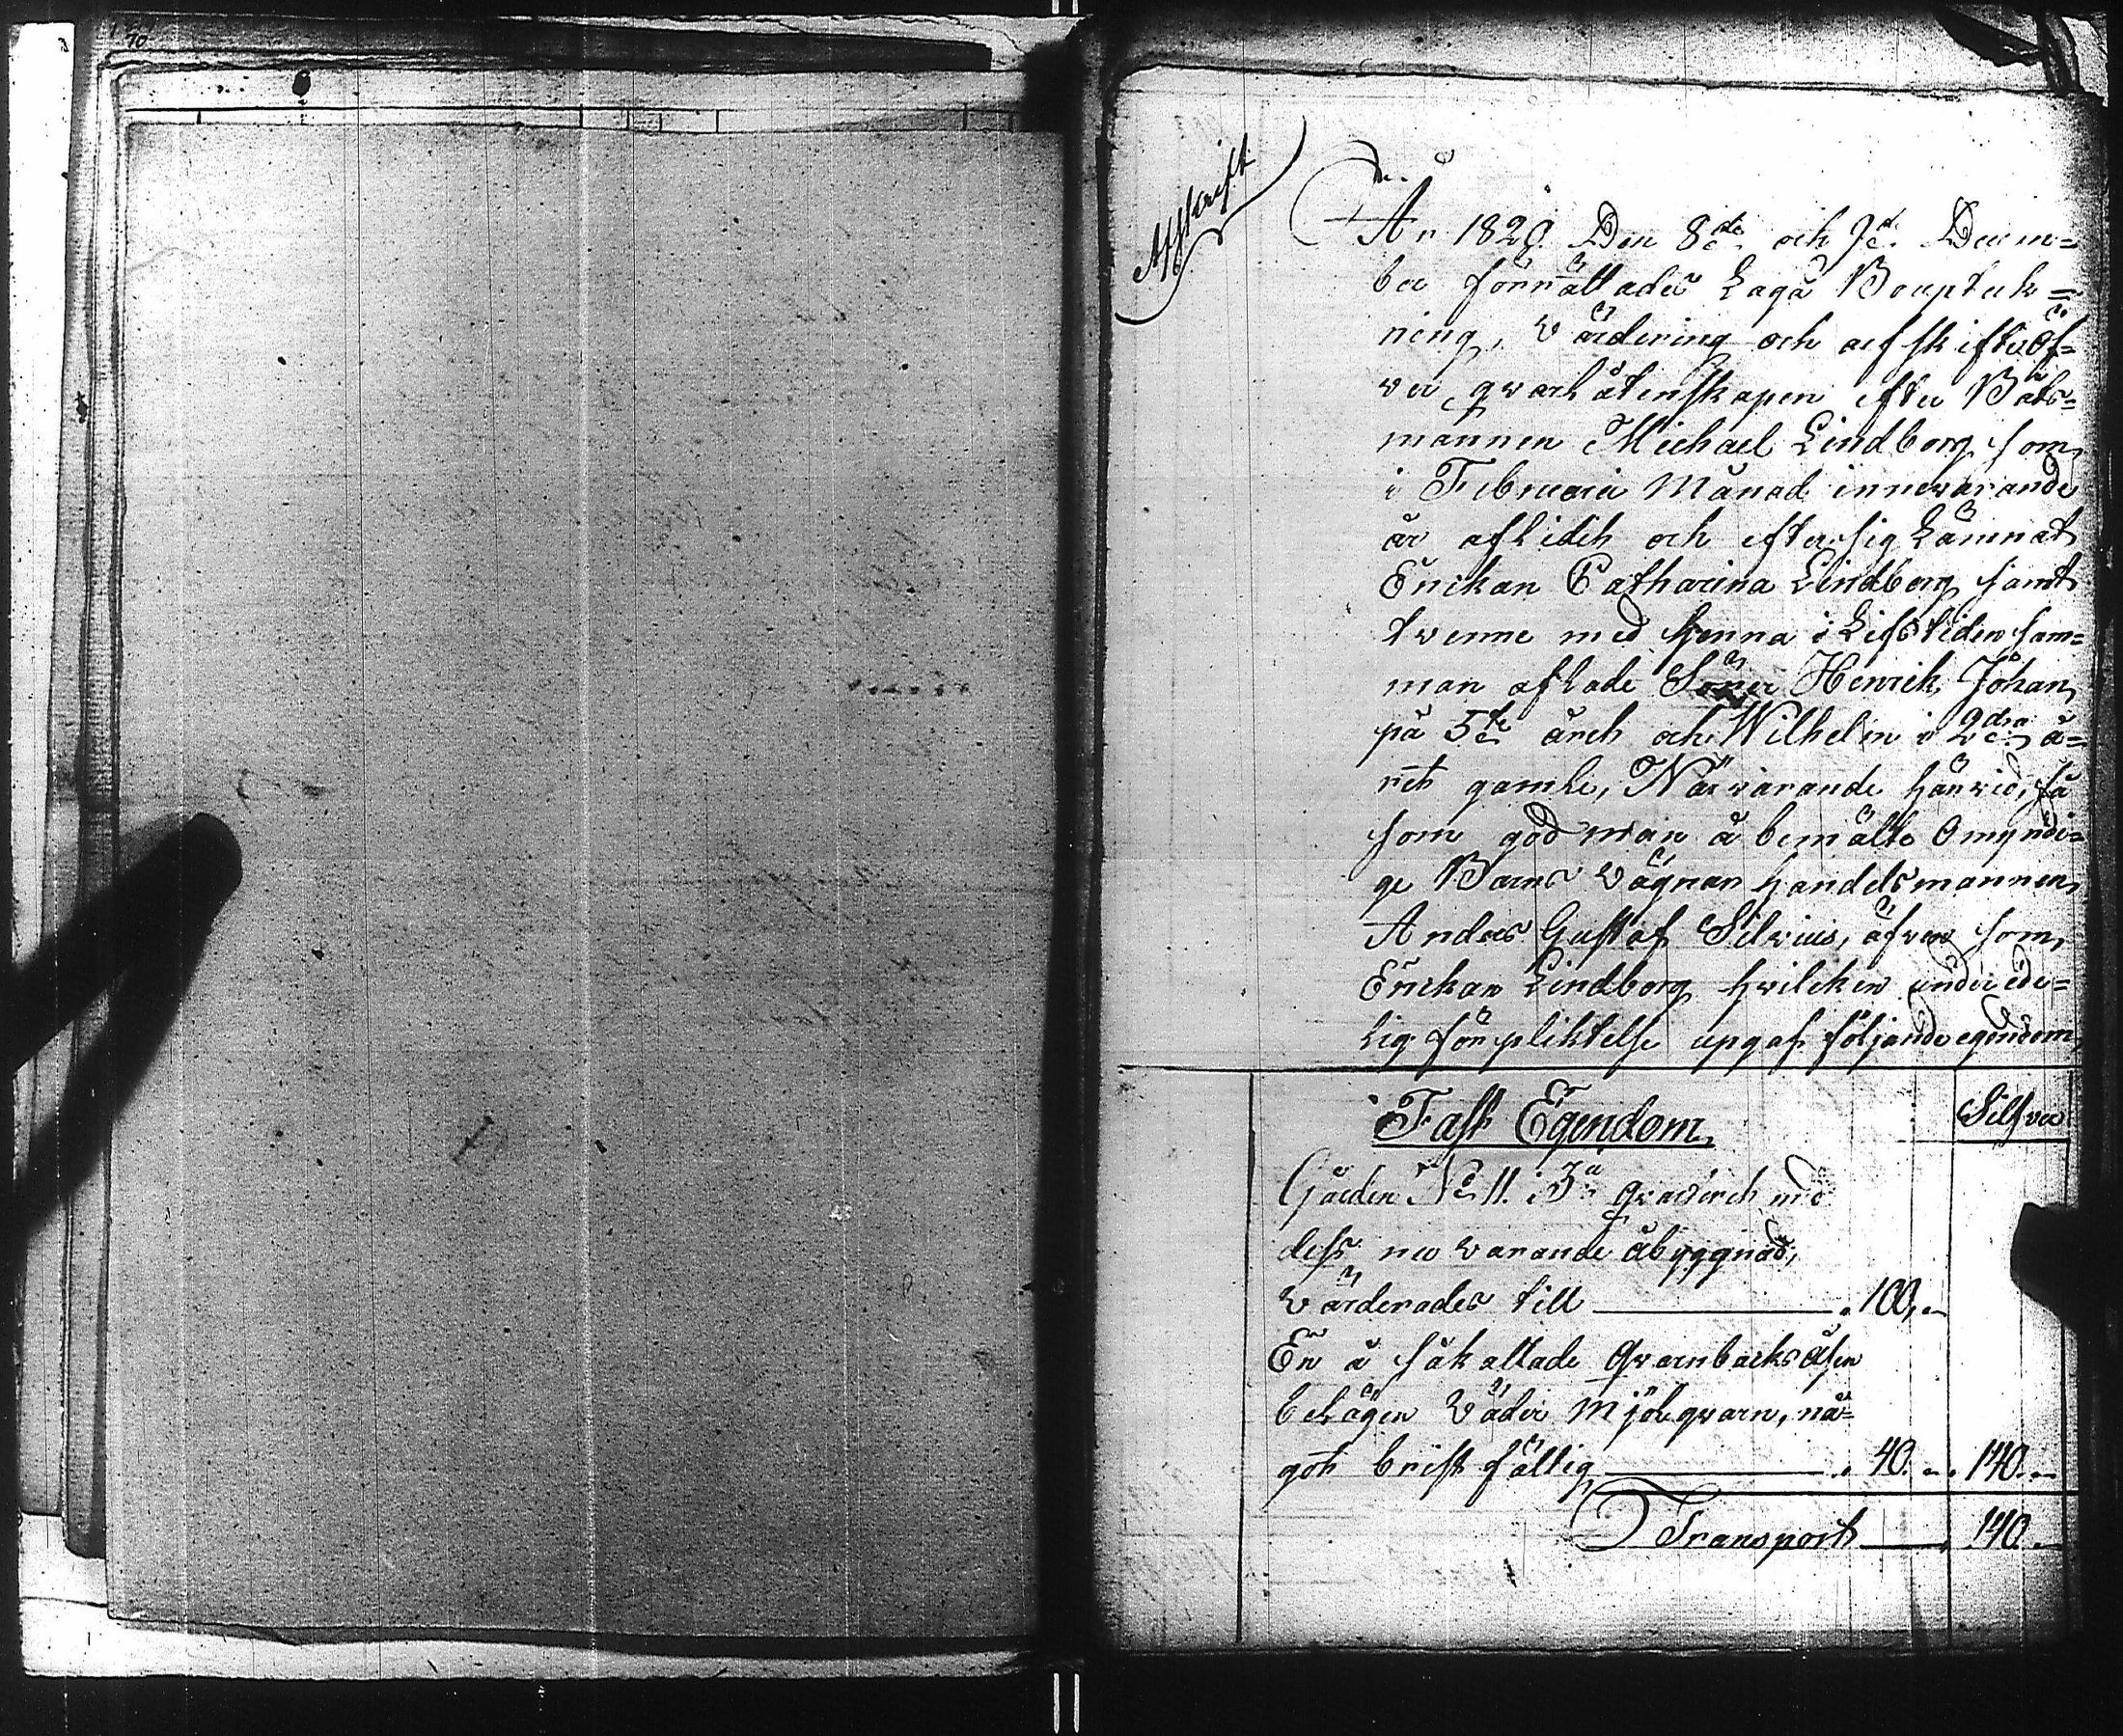 70
Afskrift
År 1829. Den 8de och 9de Decem=
ber förrättades Laga Bouptek=
ning, värdering och afskifte öf=
ver qvarlåtenskapen efter Båts=
mannen Michael Lindborg som
i Februarii Månad innevarande
år aflidit och efter sig Lämnat
Enckan Catharina Lindborg samt
tvenne med henna i Lifstiden sam=
man aflade Söner Henrik Johan
på 5te året och Wilhelm i 2dra å=
ret gamle, Närvarande härvid, så
som god man å bemälte omyndi=
ge Barns vägnar Handelsmannen
Anders Gustaf Silvius, äfven som
Enckan Lindborg hvilcken under ede=
lig förpliktelse upgaf följande egendom
Fast Egendom
Silfver
Gården No 11. i 3a qvarteret med
dess nu varande åbyggnad,
värderades till 100,-
En å så kallade Qvarnbacks åsen
belägen Väder Mjölqvarn, nå=
got bristfällig 40.- 140.-
Transport 140.-